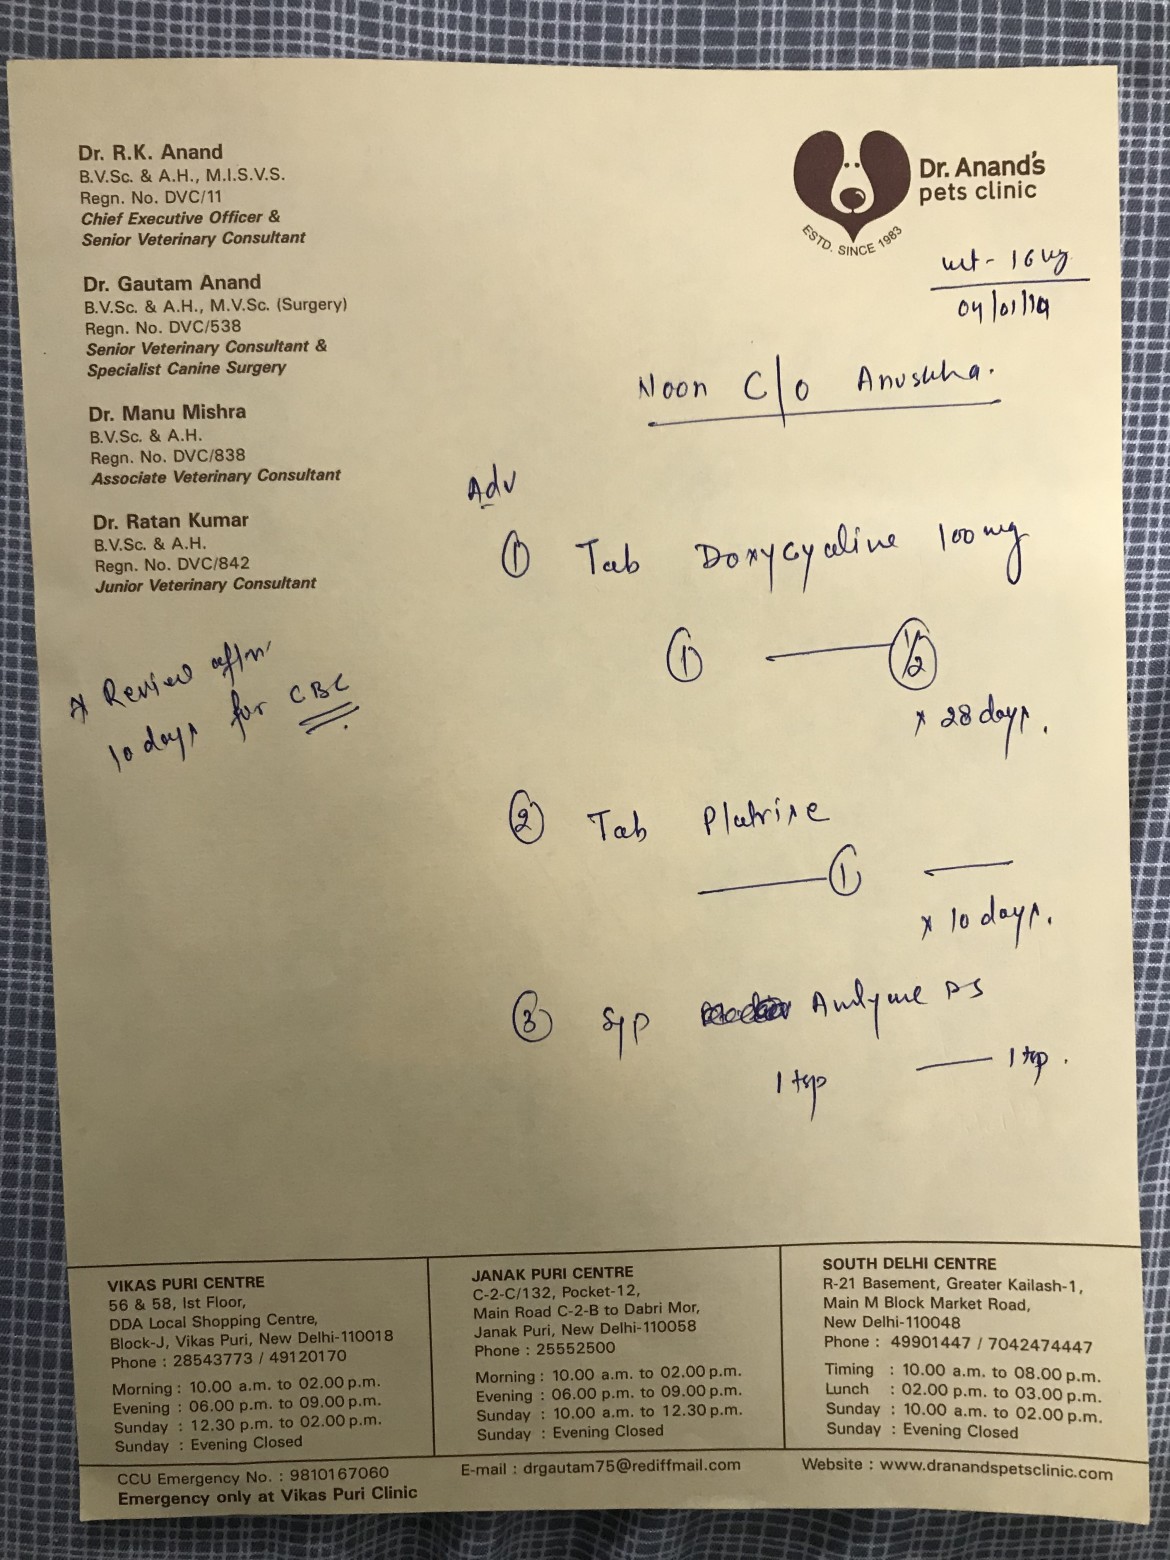 Dr. R.K. Anand
B.V.Sc. & A.H., M.I.S.V.S.
Regn. No. DVC/11
Chief Executive Officer &
Senior Veterinary Consultant
Dr. Gautam Anand
B.V.Sc. & A.H., M.V.Sc. (Surgery)
Regn. No. DVC/538
Senior Veterinary Consultant &
Specialist Canine Surgery
Dr. Manu Mishra
B.V.Sc. & A.H.
Regn. No. DVC/838
Associate Veterinary Consultant
Dr. Ratan Kumar
B.V.Sc. & A.H.
Regn. No. DVC/842
Junior Veterinary Consultant
* Review after
10 days for CBC
Dr. Anand's
pets clinic
ESTD. SINCE 1983
wt - 16 kg
04/01/19
Noon C/o Anuskha.
Adv
① Tab Doxycycline 100 mg
① — ½
x 28 days.
② Tab Platrise
— ① —
x 10 days.
③ Syp DS
1 tsp — 1 tsp.
VIKAS PURI CENTRE
56 & 58, Ist Floor,
DDA Local Shopping Centre,
Block-J, Vikas Puri, New Delhi-110018
Phone : 28543773 / 49120170
Morning : 10.00 a.m. to 02.00 p.m.
Evening : 06.00 p.m. to 09.00 p.m.
Sunday : 12.30 p.m. to 02.00 p.m.
Sunday : Evening Closed
JANAK PURI CENTRE
C-2-C/132, Pocket-12,
Main Road C-2-B to Dabri Mor,
Janak Puri, New Delhi-110058
Phone : 25552500
Morning : 10.00 a.m. to 02.00 p.m.
Evening : 06.00 p.m. to 09.00 p.m.
Sunday : 10.00 a.m. to 12.30 p.m.
Sunday : Evening Closed
SOUTH DELHI CENTRE
R-21 Basement, Greater Kailash-1,
Main M Block Market Road,
New Delhi-110048
Phone : 49901447 / 7042474447
Timing : 10.00 a.m. to 08.00 p.m.
Lunch : 02.00 p.m. to 03.00 p.m.
Sunday : 10.00 a.m. to 02.00 p.m.
Sunday : Evening Closed
CCU Emergency No. : 9810167060
Emergency only at Vikas Puri Clinic
E-mail : drgautam75@rediffmail.com
Website : www.dranandspetsclinic.com